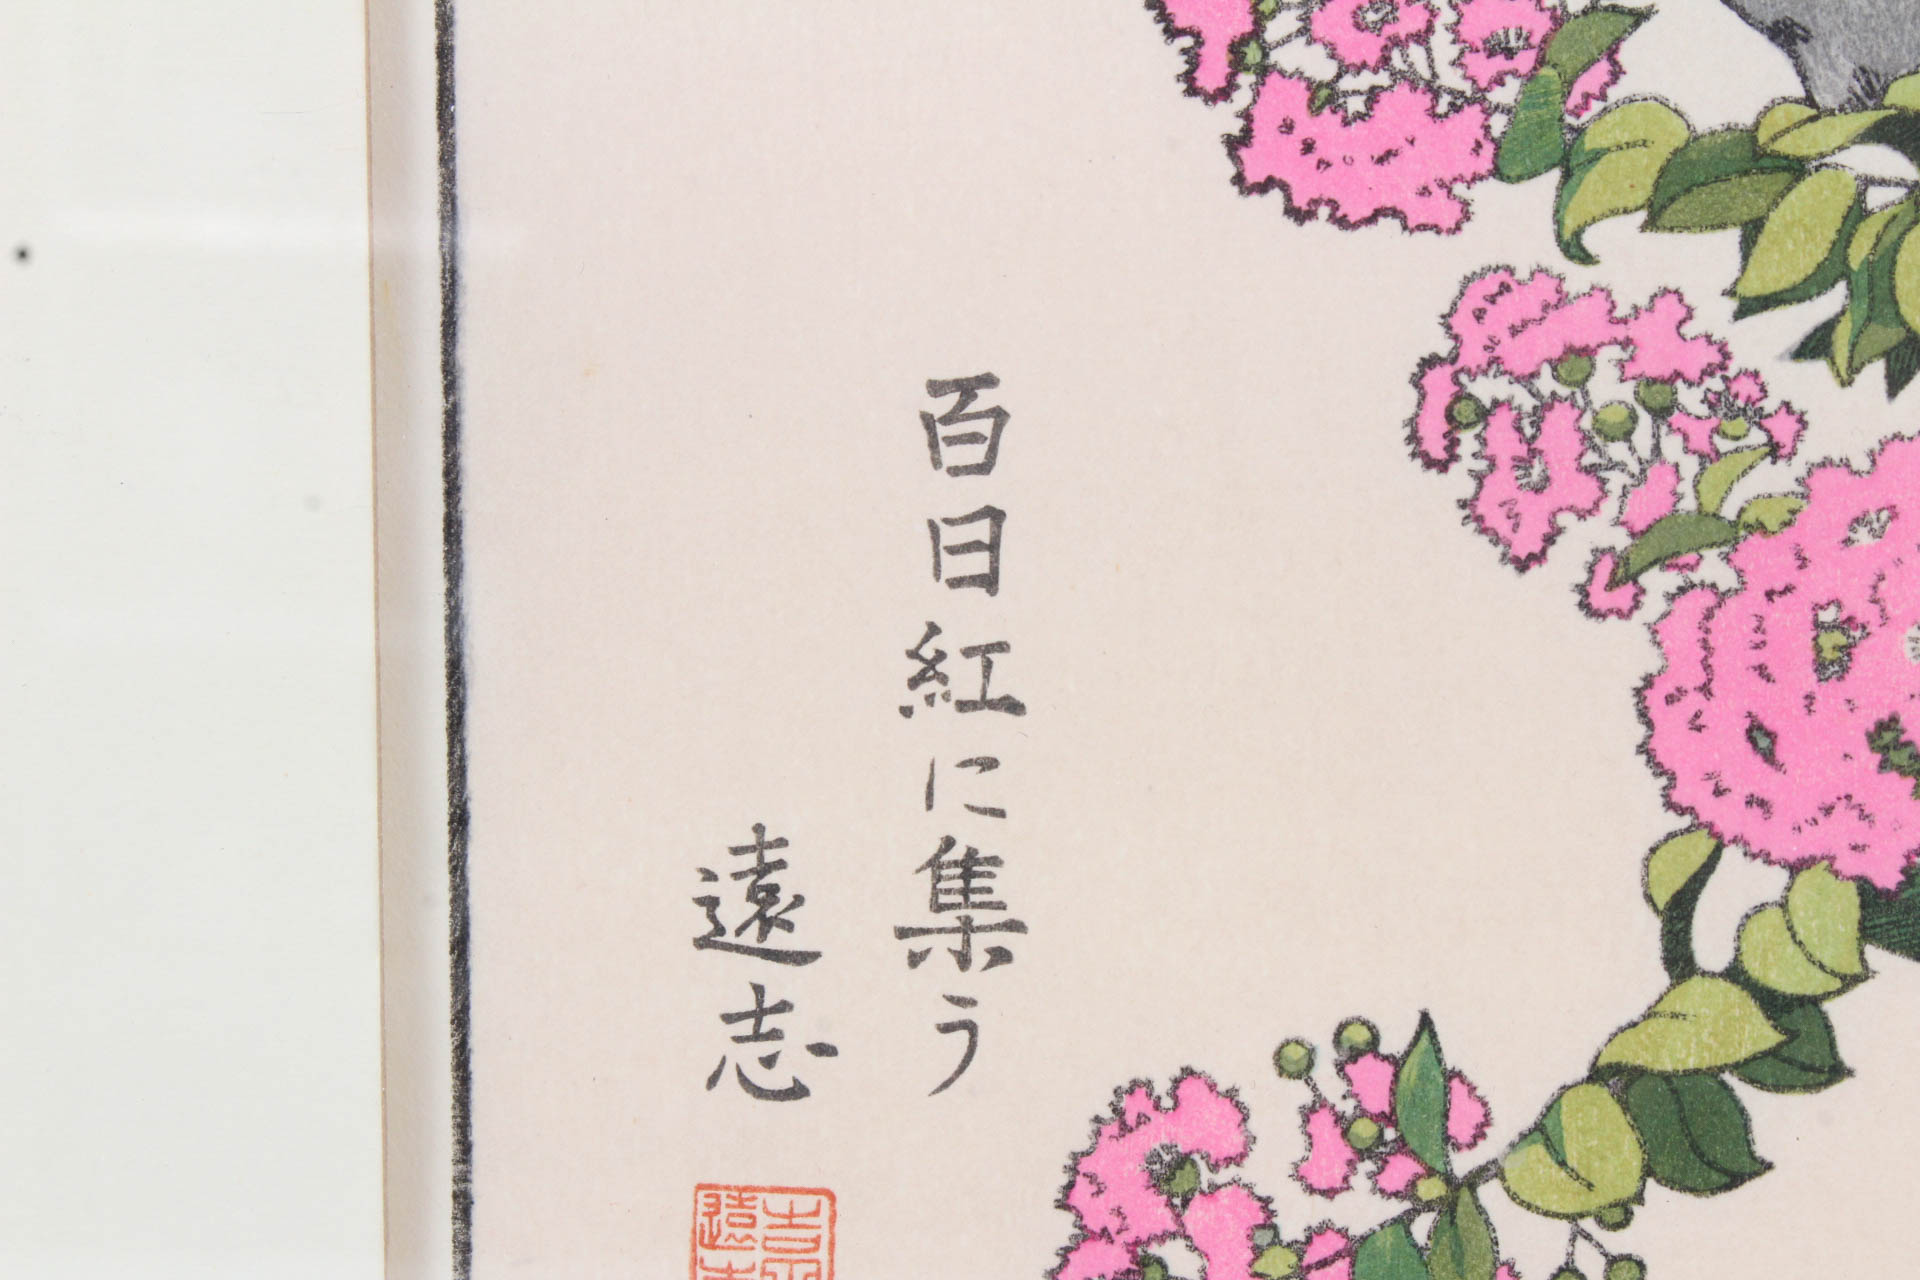 百日紅に集う
遠志